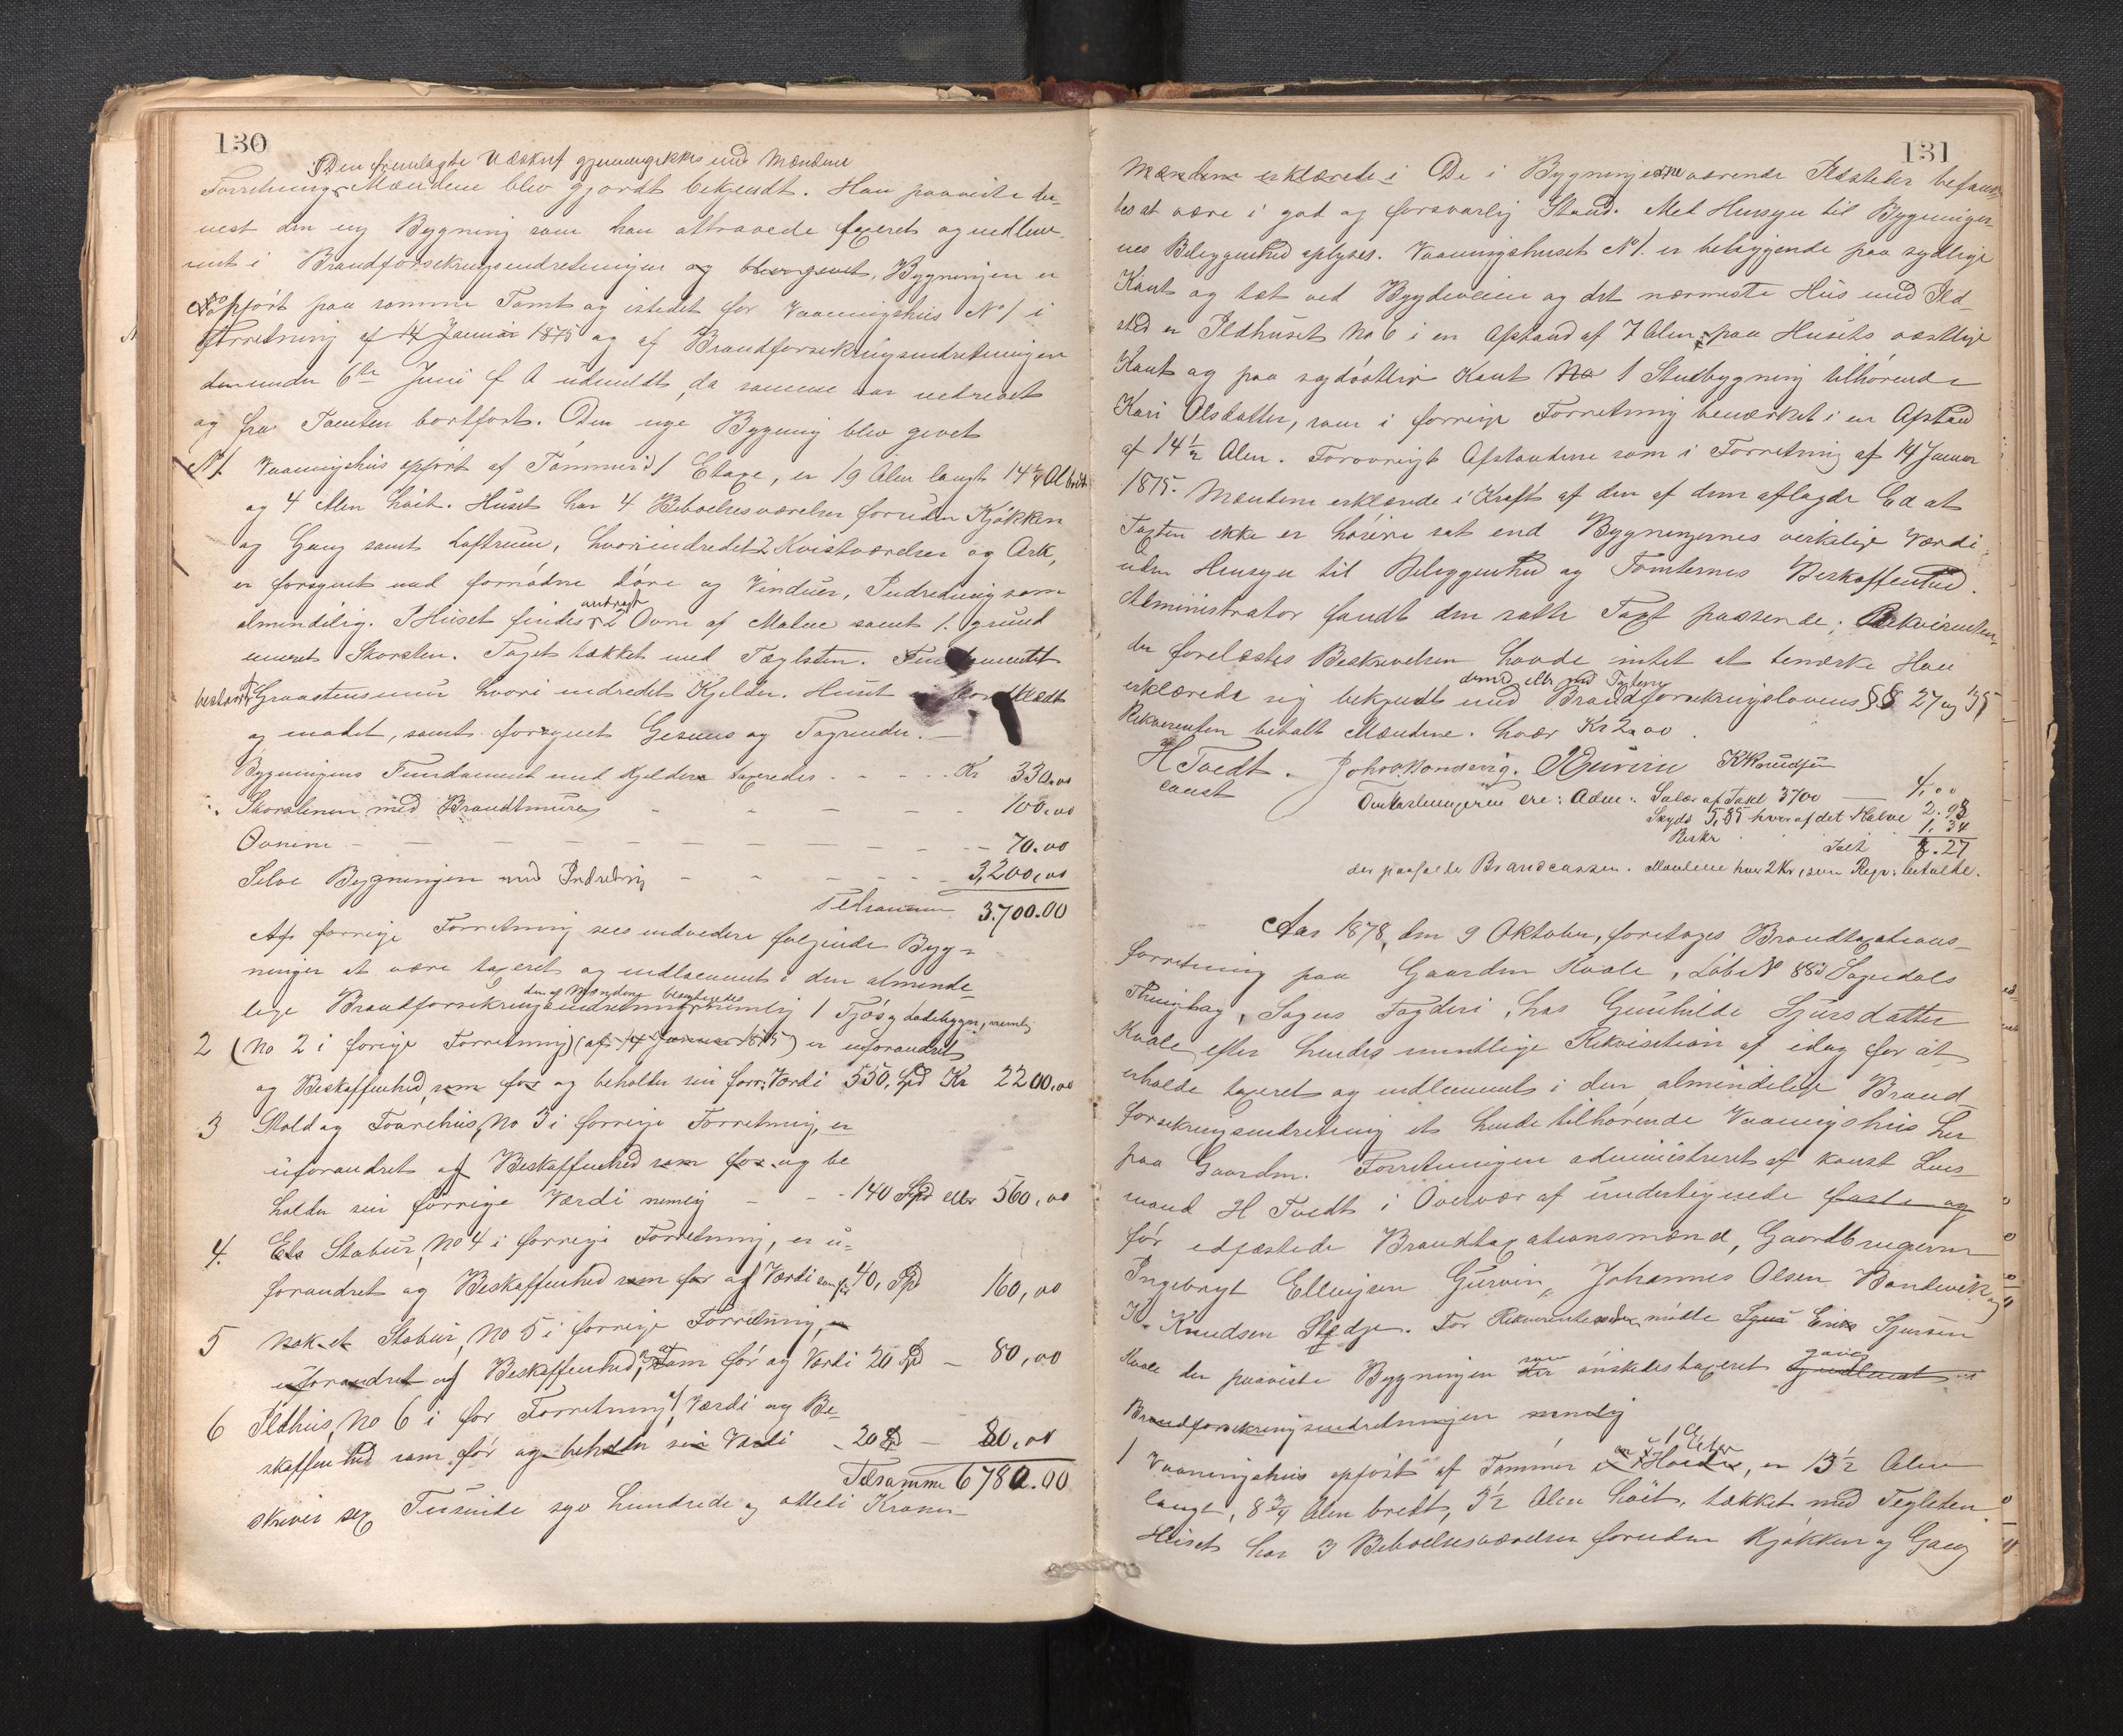 130
Den fremlagte Udskrift gjennemgikkes med Mændene
Forretnings Mændene blev gjordt bekjendt. Han paaviste der-
næst den ny Bygning som han attraaede taxeret og indlem-
met i Brandforsikringsindretningen og Bygningen er
opført paa samme Tomt og istedet for Vaaningshus No 1 i
Forretning af 14 Januar 1875 og af Brandforsikringsindretningen
den under 6te Juni f A udmeldt, da samme var nedrevet
og fra Tomten bortført. Den nye Bygning blev givet
No 1. Vaaningshus opført af Tømmer i 1 Etage, er 19 Alen langt 14 1/4 Al bredt
og 4 Alen höit. Huset har 4 Beboelsesværelser foruden Kjökken
og Gang samt Loftrum, hvori indredet 2 Kvistværelser og Ark,
er forsynet med fornödne Döre og Vinduer, Indredning som
almindelig. I Huset findes anbragt 2 Ovne af Malm samt 1 grund
muret Skorsten. Taget tækket med Tæglsten. Fundamentet
bestaar af Graastensmur hvori indredet Kjelder. Huset er bordklædt
og malet, samt forsynet Gesims og Tagrender.
Bygningens Fundament med Kjelder taxeredes - - - - Kr 330.00
Skorstenen med Brandtmure - - - - - 100.00
Ovnene - - - - - - - - 70.00
Selve Bygningen med Indredning - - - - - 3,200,00
Tilsammen 3.700.00
Af forrige Forretning sees endvidere følgende Byg-
ninger at være taxeret og indlemmet i den alminde-
lige Brandforsikringsindretning den af Mændene besigtigedes nemlig 1 Fjös og Ladebygn, nemlig
2 (No 2 i forige Forretning) (af 14 Januar 1875) er uforandret
og Beskaffenhed, som før og beholder sin forr. Værdi 550, Spd Kr 2200,00
3 Stald og Fourehus, No 3 i forrige Forretning, er
uforandret af Beskaffenhed som før og be
holder sin forrige Værdi nemlig - - - 140 Spd eller 560,00
4. Ets Stabur, No 4 i forrige Forretning, er u-
forandret og Beskaffenhed som før af Værdi som før 40, Spd 160,00
5 Nok et Stabur, No 5 i forrige Forretning, er
uforandret af Beskaffenhed, som før og Værdi 20 Spd - 80,00
6 Ildhus, No 6 i før Forretning, Værdi og Be-
skaffenhed som før og beholder sin Værdi - 20 Spd - 80,00
Tilsamme 6780.00
skriver sex Tusinde syv hundrede og otteti Kroner
131
Mændene erklærede i De i Bygningerne værende Ildsteder befand-
tes at være i god og forsvarlig Stand. Med Hensyn til Bygninger-
nes Beliggenhed oplyses. Vaaningshuset No 1. er beliggende paa sydlige
Kant og tæt ved Bygdeveien og det nærmeste Hus med Ild-
sted er Ildhuset No 6 i en Afstand af 7 Alen paa Husets vestlige
Kant og paa sydöstlig Kant No 1 Stuebygning tilhörende
Kari Olsdatter, som i forrige Forretning bemærket i en Afstand
af 14 1/2 Alen. Forøvrigt Afstandene som i Forretning af 14 Januar
1875. Mændene erklærede i Kraft af den af dem aflagde Ed at
Taxten ikke er höiere sat end Bygningernes virkelige Værdi
uden Hensyn til Beliggenhed og Tomternes Beskaffenhed.
Administrator fandt den satte Taxt passende; Rekvirenten,
der forelæstes Beskrivelsen havde intet at bemærke Han
erklærede sig bekjendt med Brandforsikringslovens §§ 27 og 35
Rekvirenten betalt Mændene. hvær Kr 2,00.
H Tvedt. K Knudsen
const
Omkostningerne ere: Adm: Salær af Taxt 3700 — 4,00
Skyds 5,85 hvor af det Halve 2.93
1,34
Ialt 8.27
der paafalder Brandcassen. Mændene hver 2 Kr, som Reqv. betalte.
Aar 1878, den 9 Oktober, foretoges Brandtaxations-
forretning paa Gaarden Kvale, Löbe No 883 Sogndals
Thinglag, Sogns Fogderi, hos Gunhilde Sjursdatter
Kvale efter hendes mundtlige Rekvisition af idag for at
erholde taxeret og indlemmet i den almindelige Brand-
forsikringsindretning et hende tilhørende Vaaningshus her
paa Gaarden. Forretningen administreret af konst Lens-
mand H Tvedt i Overvær af undertegnede faste og
för edfæstede Brandtaxationsmænd, Gaardbrugerne
Ingebrigt Ellingsen Gurvin, Johannes Olsen og
K. Knudsen Stedje. For Rekvirentinden mötte Sjur Erik Sjursen
Kvale der paaviste Bygningen som der önskedes taxeret og indlemt i
Brandforsikringsindretningen nemlig
1 Vaaningshus opfört af Tømmer i 1 Etage, er 13 1/2 Alen
langt, 8 3/4 Alen bredt, 3 1/2 Alen höit, tækket med Teglsten.
Huset har 3 Beboelsesværelser foruden Kjökken og Gang